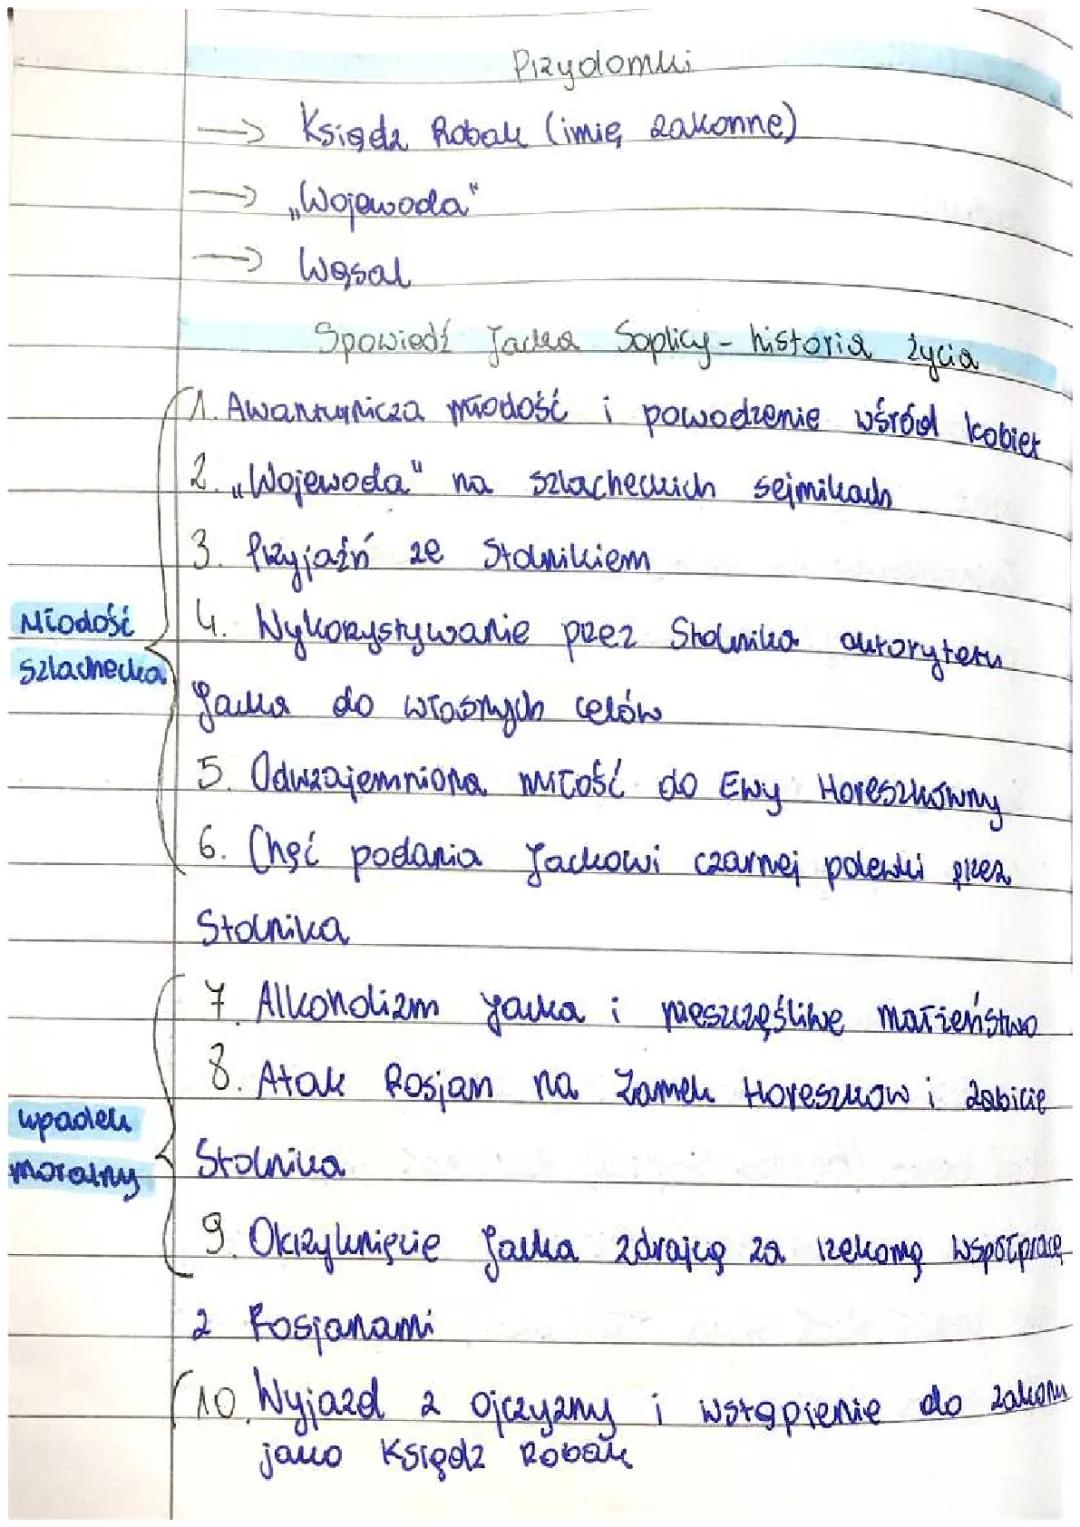 Przydomki
→ Ksiądz Robak (imię zakonne)
→ „Wojewoda"
→ Wąsal
Spowiedź Jacka Soplicy - historia życia
1. Awanturnicza młodość i powodzenie wśród kobiet
2. „Wojewoda" na szlacheckich sejmikach
3. Przyjaźń ze Stolnikiem
Młodość
szlachecka
4. Wykorzystywanie przez Stolnika autorytetu
Jacka do własnych celów
5. Odwzajemniona miłość do Ewy Horeszkówny
6. Chęć podania Jackowi czarnej polewki przez
Stolnika
7. Alkoholizm Jacka i nieszczęśliwe małżeństwo
8. Atak Rosjan na Zamek Horeszków i zabicie
Stolnika
upadek
moralny
9. Okrzyknięcie Jacka zdrajcą za rzekomą współpracę
z Rosjanami
10. Wyjazd z ojczyzny i wstąpienie do zakonu
jako Ksiądz Robak